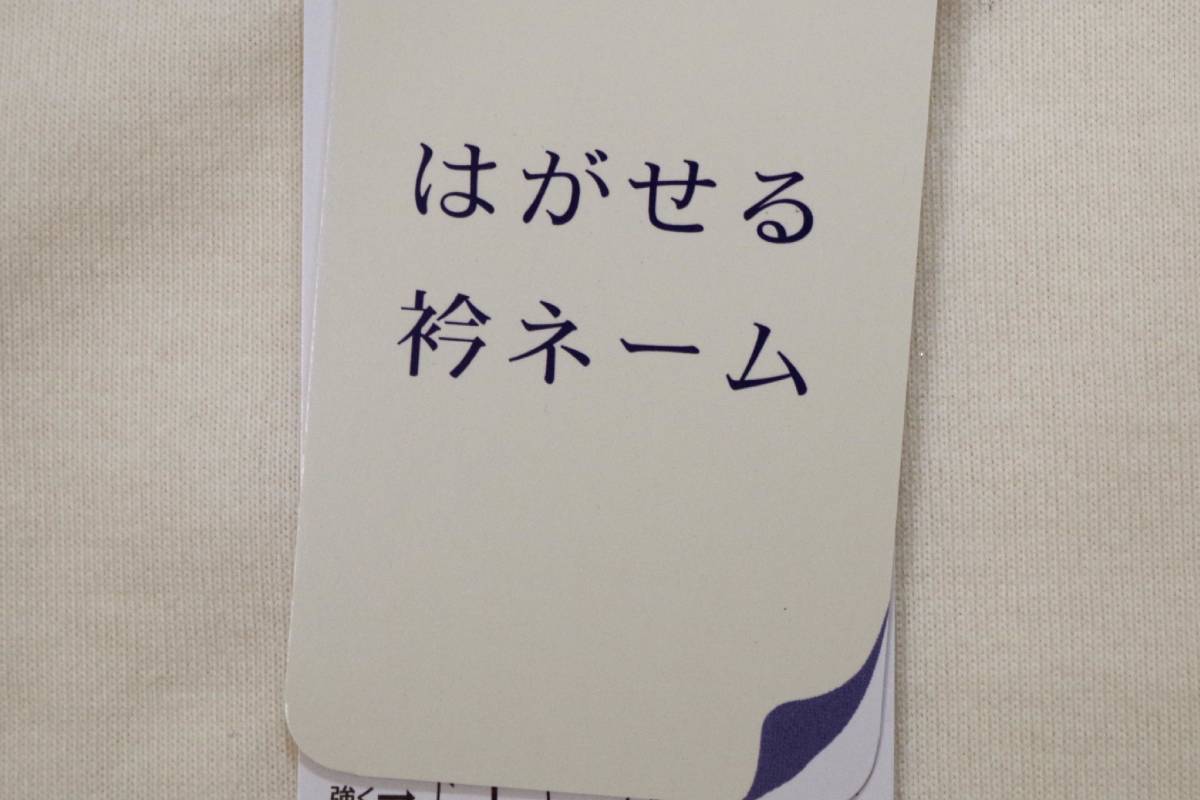 はがせる
衿ネーム
強く